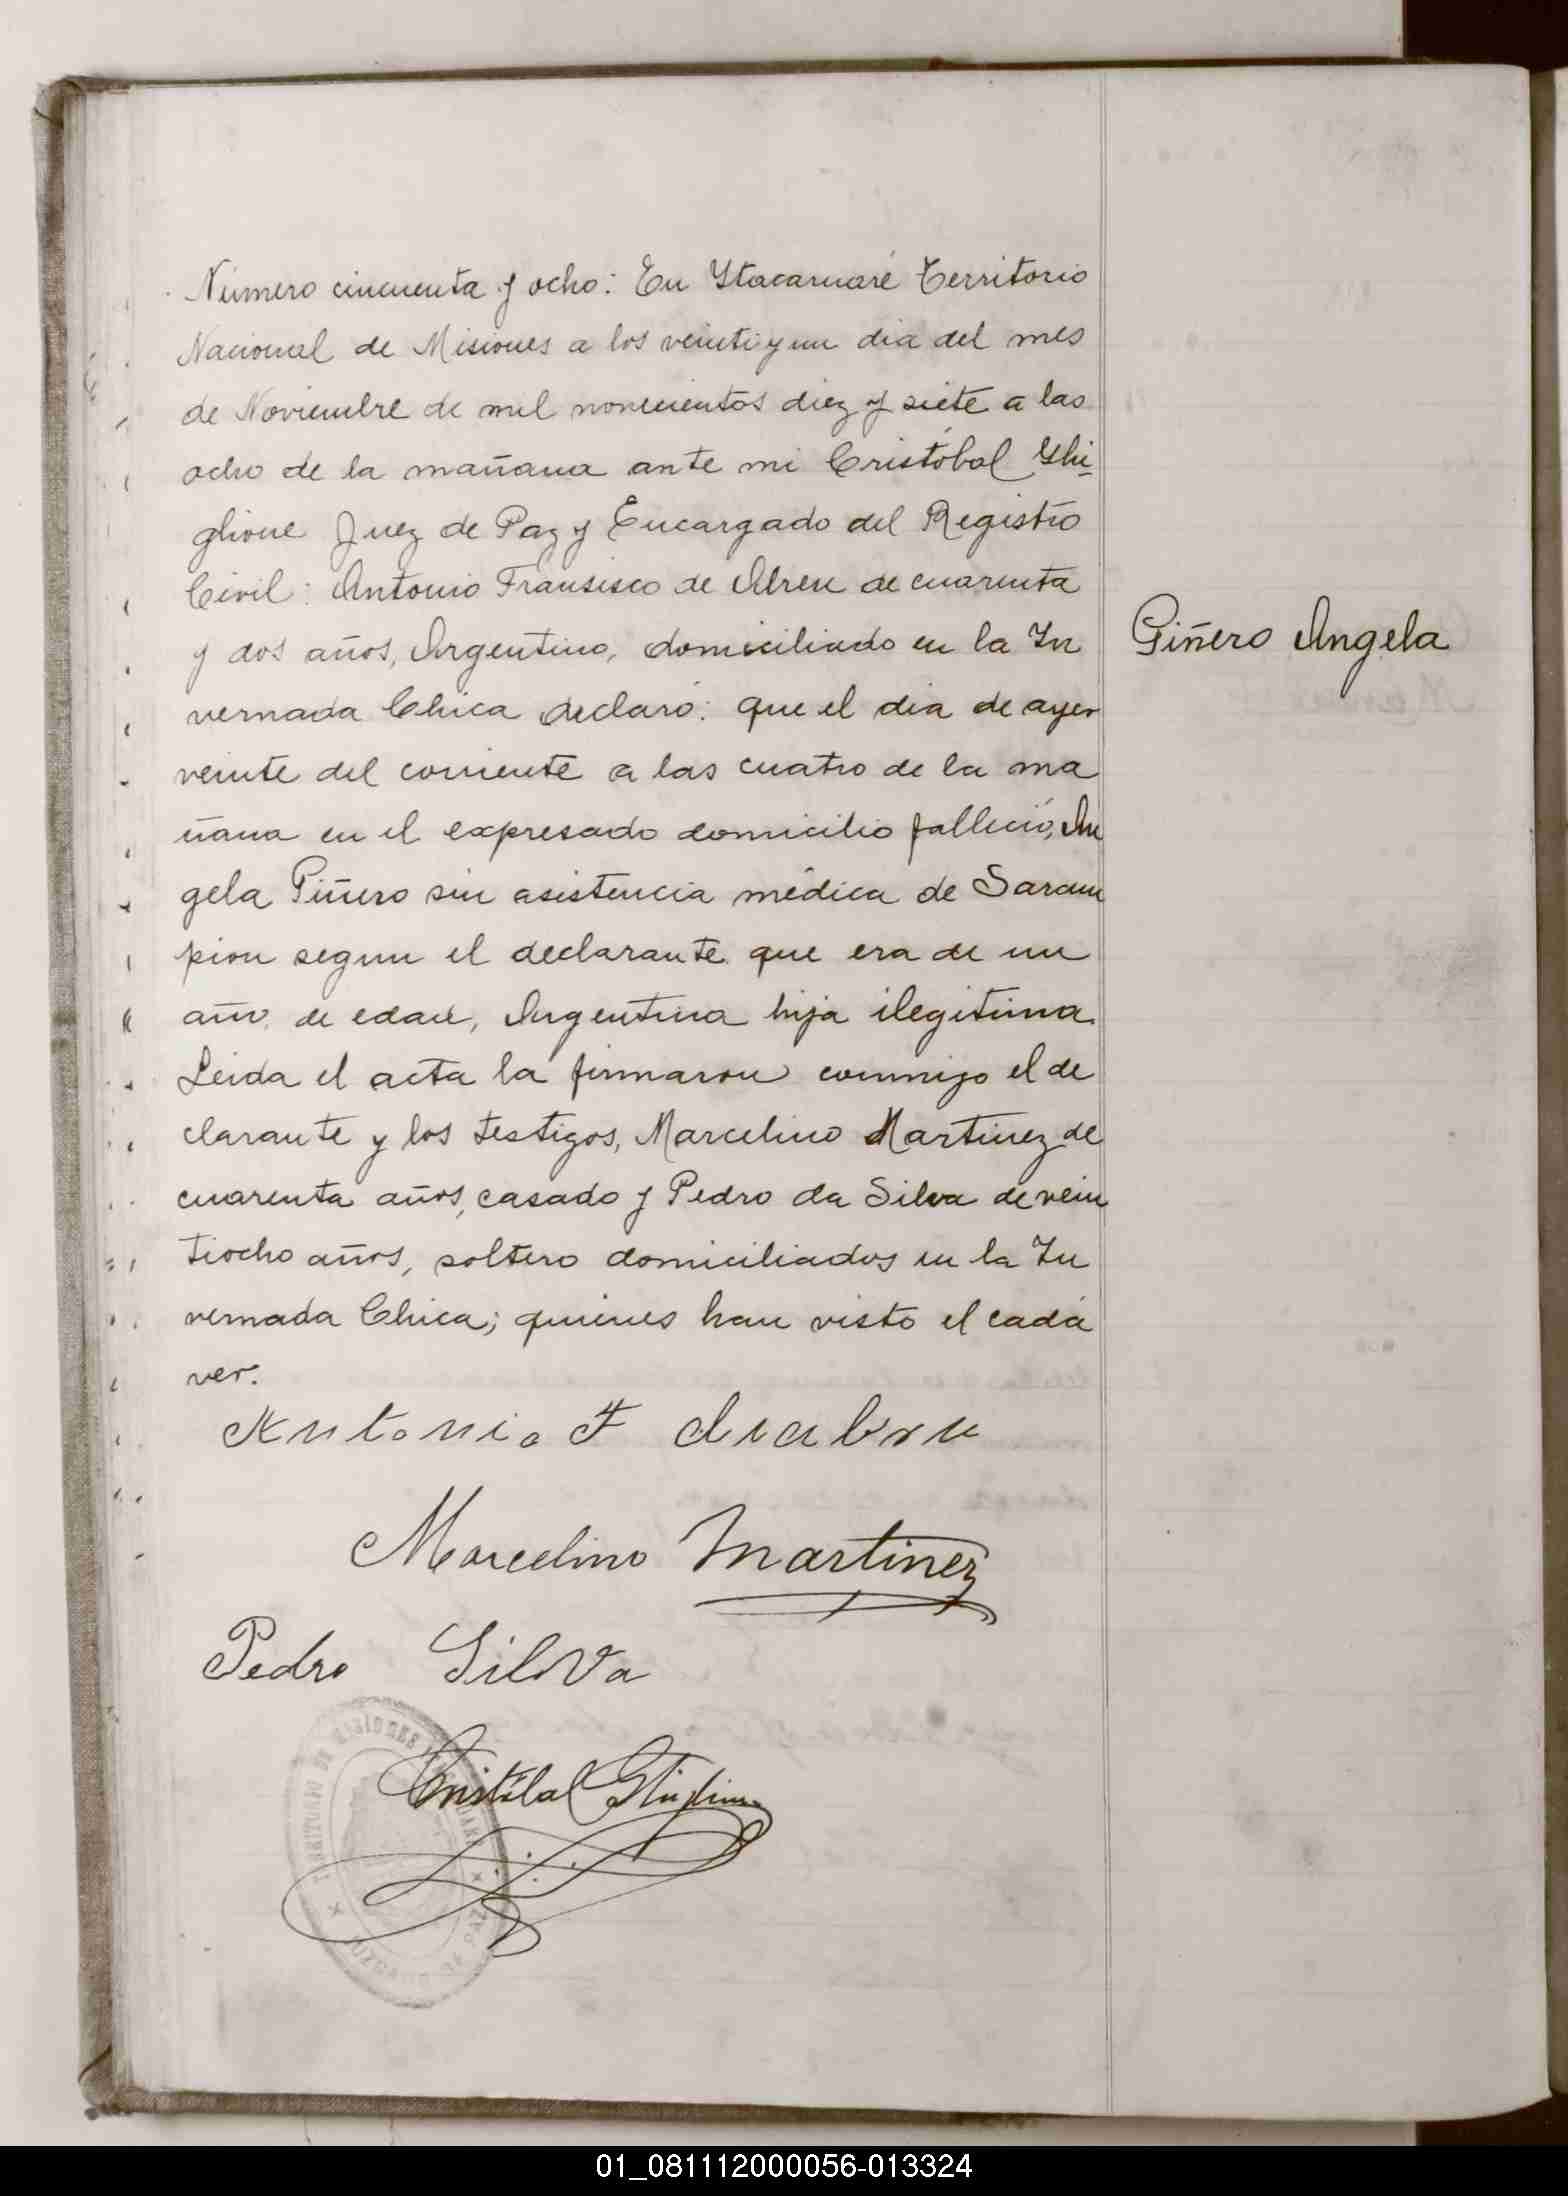 Número cincuenta y ocho: En Ytacaruaré Territorio
Nacional de Misiones a los veinti y un dia del mes
de Noviembre de mil novecientos diez y siete a las
ocho de la mañana ante mi Cristóbal Ghi-
glione Juez de Paz y Encargado del Registro
Civil: Antonio Fransisco de Abreu de cuarenta
y dos años, Argentino, domiciliado en la In
vernada Chica declaró: que el dia de ayer
veinte del corriente a las cuatro de la ma
ñana en el expresado domicilio falleció, An
gela Piñero sin asistencia médica de Saram
pion segun el declarante que era de un
año de edad, Argentina hija ilegitima
Leida el acta la firmaron conmigo el de
clarante y los testigos, Marcelino Martinez de
cuarenta años, casado y Pedro da Silva de vein
tiocho años, soltero domiciliados en la In
vernada Chica; quienes han visto el cadá
ver.
Piñero Angela
Antonio F deabru
Marcelino Martinez
Pedro Silva
TERRITORIO DE MISIONES
JUZGADO DE PAZ
Cristóbal Ghiglione
01_081112000056-013324